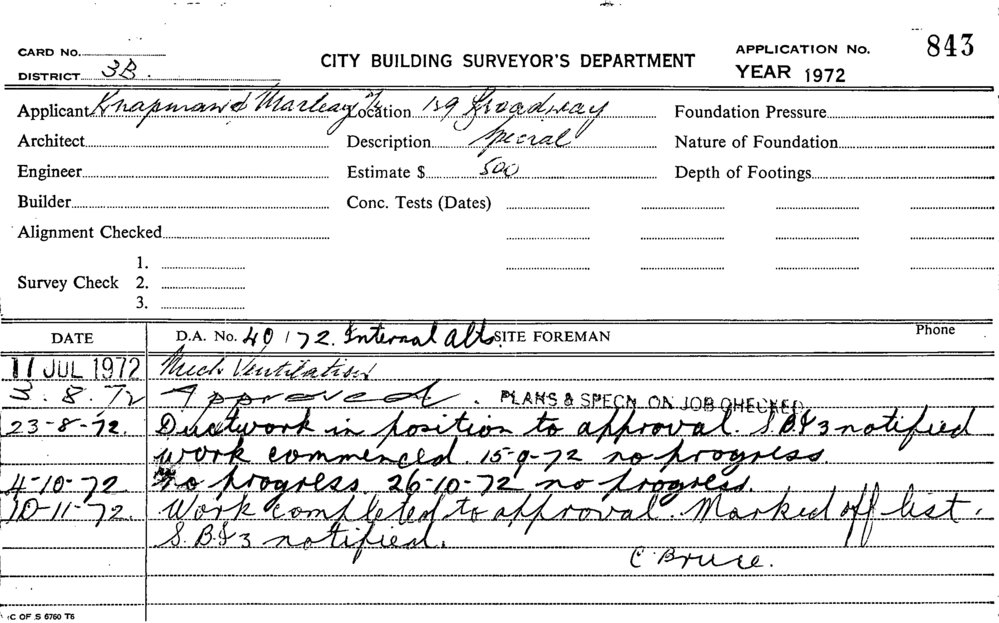 CARD No. CITY BUILDING SURVEYOR'S DEPARTMENT APPLICATION No. 843
DISTRICT 3B. YEAR 1972
Applicant Knapman & Location 139 Broadway Foundation Pressure
Architect Description Special Nature of Foundation
Engineer Estimate $ 500 Depth of Footings
Builder Conc. Tests (Dates)
Alignment Checked
1.
Survey Check 2.
3.
DATE D.A. No. 40/72. Internal Alts SITE FOREMAN Phone
11 JUL 1972 Mech Ventilation
3.8.72 Approved. PLANS & SPECN. ON JOB CHECKED
23-8-72. Ductwork in position to approval. S.B.I 3 notified
work commenced. 15-9-72 no progress
4-10-72 no progress. 26-10-72 no progress.
10-11-72. Work completed to approval. Marked off list.
S.B.I 3 notified.
C Bruce.
C OF S 6760 T6